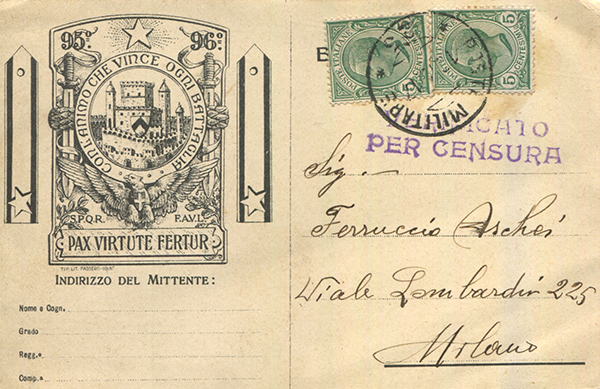 95º 96º
CON L'ANIMO CHE VINCE OGNI BATTAGLIA
S.P.Q.R. F.A.V.L.
PAX VIRTUTE FERTUR
TIP. LIT. PASSERO
INDIRIZZO DEL MITTENTE:
Nome e Cogn.
Grado
Regg.º
Comp.ª
5 5
POSTE ITALIANE
MILITARE
PER CENSURA
Sig.
Ferruccio Aschei
Viale Lombardia 225
Milano